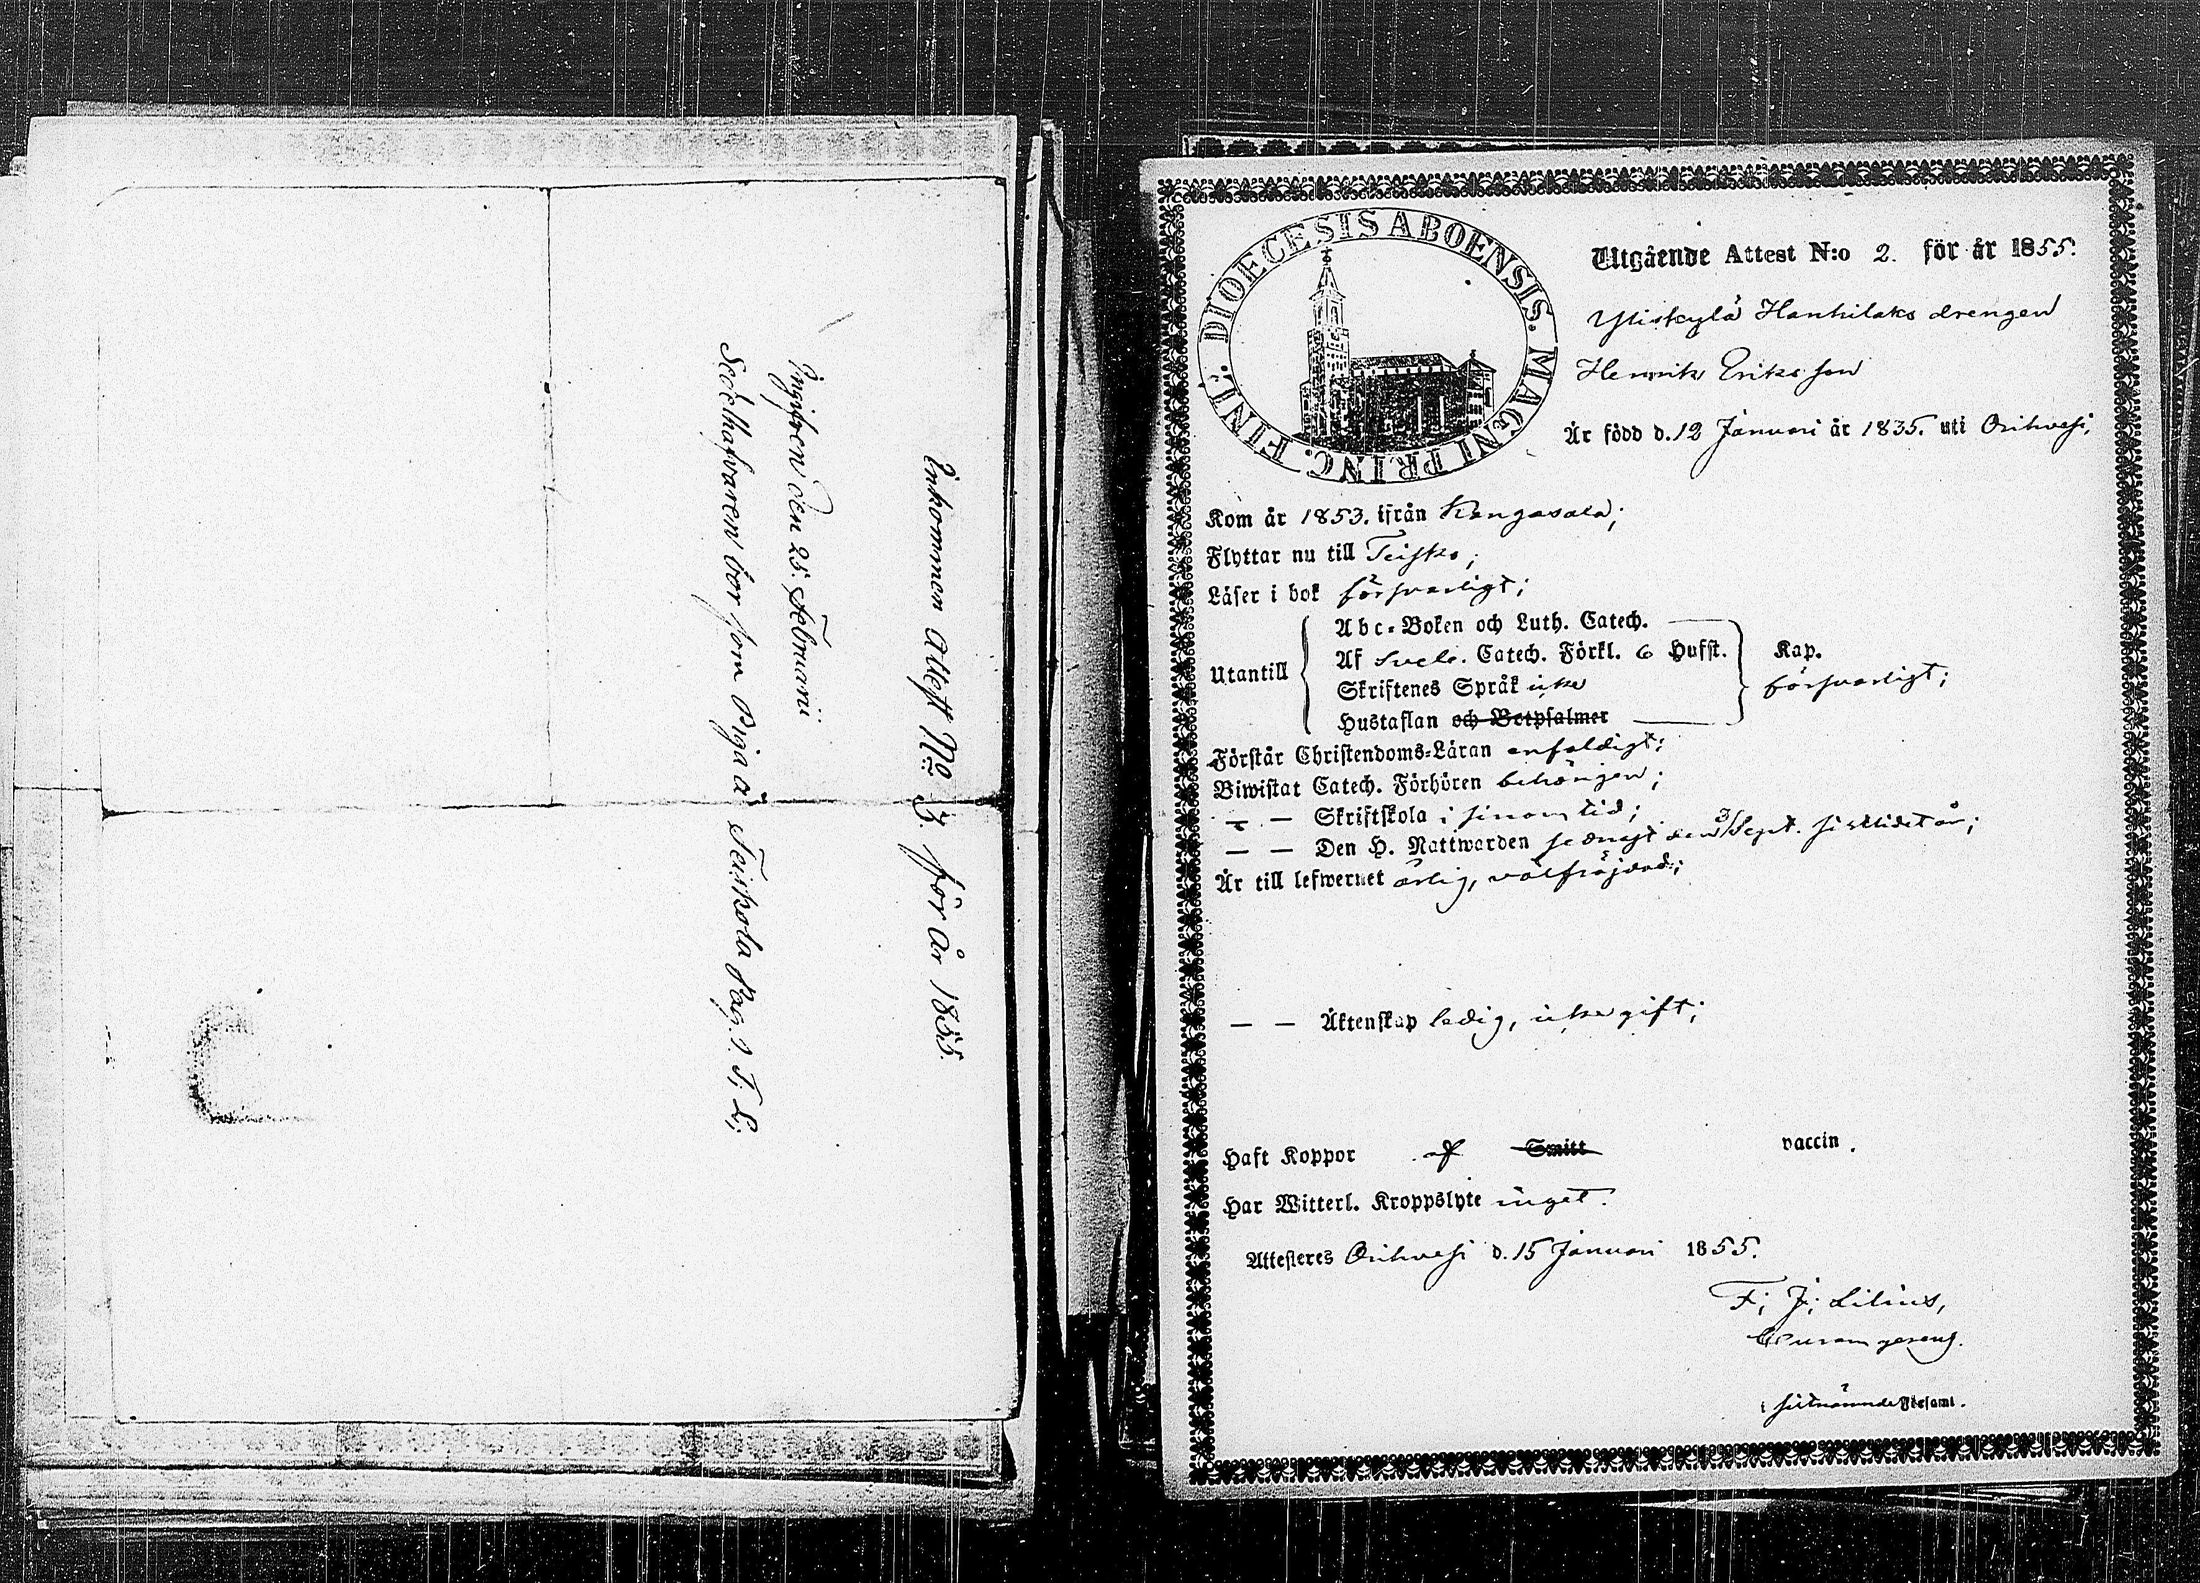 Inkommen Attest No 3. för år 1855.
Ingifven den 25. Februarii
Sedelhafvaren bor som Piga å Teiskola Pag. 1. T. L;
DIOECESIS ABOENSIS. MAGNI PRINC. FINL.
Utgående Attest N:o 2. för år 1855.
Yliskylä Hanhilaks drengen
Henrik Eriksson
Är född d. 12 Januari år 1835. uti Orihvesi,
Kom år 1853. ifrån Kangasala;
Flyttar nu till Teisko;
Läser i bok försvarligt;
Utantill
Abc-Boken och Luth. Catech.
Af Svebe. Catech. Förkl. 6 Hufst. Kap.
Skriftenes Språk icke
försvarligt;
Hustaflan och Botpsalmer
Förstår Christendoms-Läran enfaldigt;
Biwistat Catech. Förhören behörigen;
— — Skriftskola i sinom tid;
— — Den H. Nattwarden senast den 3 Sept. sistlidet år;
Är till lefwernet ärlig, välfräjdad;
— — Äktenskap ledig, icke gift;
Haft Koppor af Smitt vaccin.
Har Witterl. Kroppslyte inget.
Attesteres Orihvesi d. 15 Januari 1855.
F; J; Lilius,
i sistnämnde Församl.